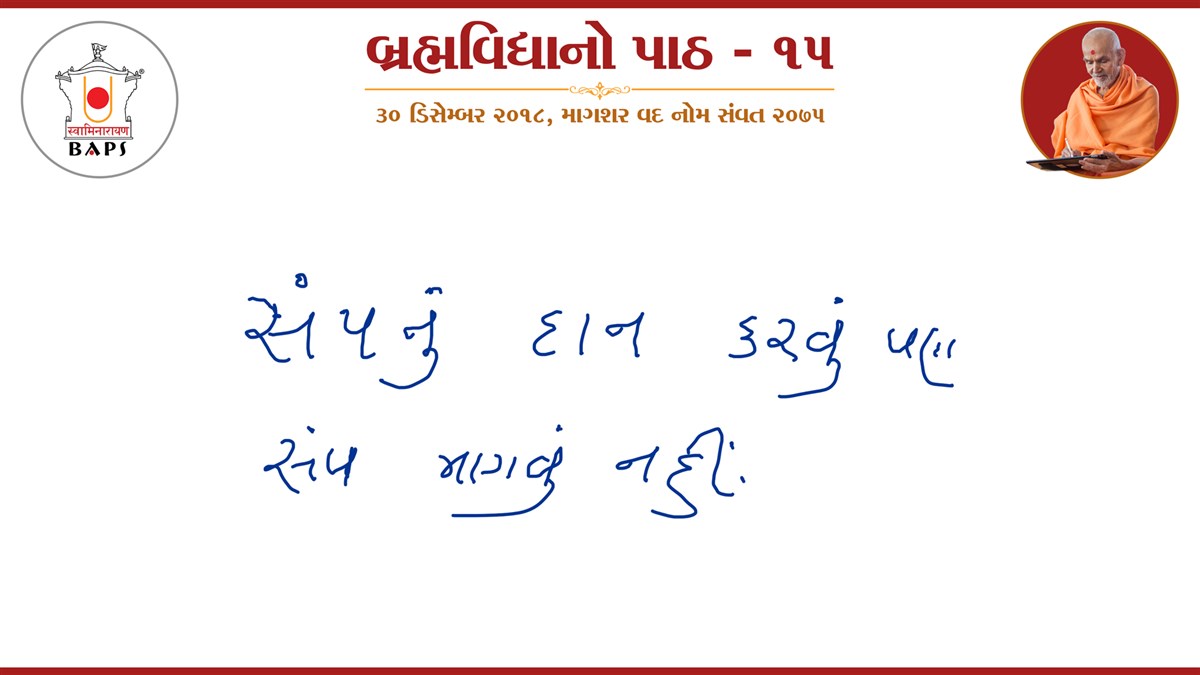 બ્રહ્મવિદ્યાનો પાઠ - ૧૫
૩૦ ડિસેમ્બર ૨૦૧૮, માગશર વદ નોમ સંવત ૨૦૭૫
स्वामिनारायण
BAPS
સંપનું દાન કરવું પણ
સંપ માગવું નહીં.